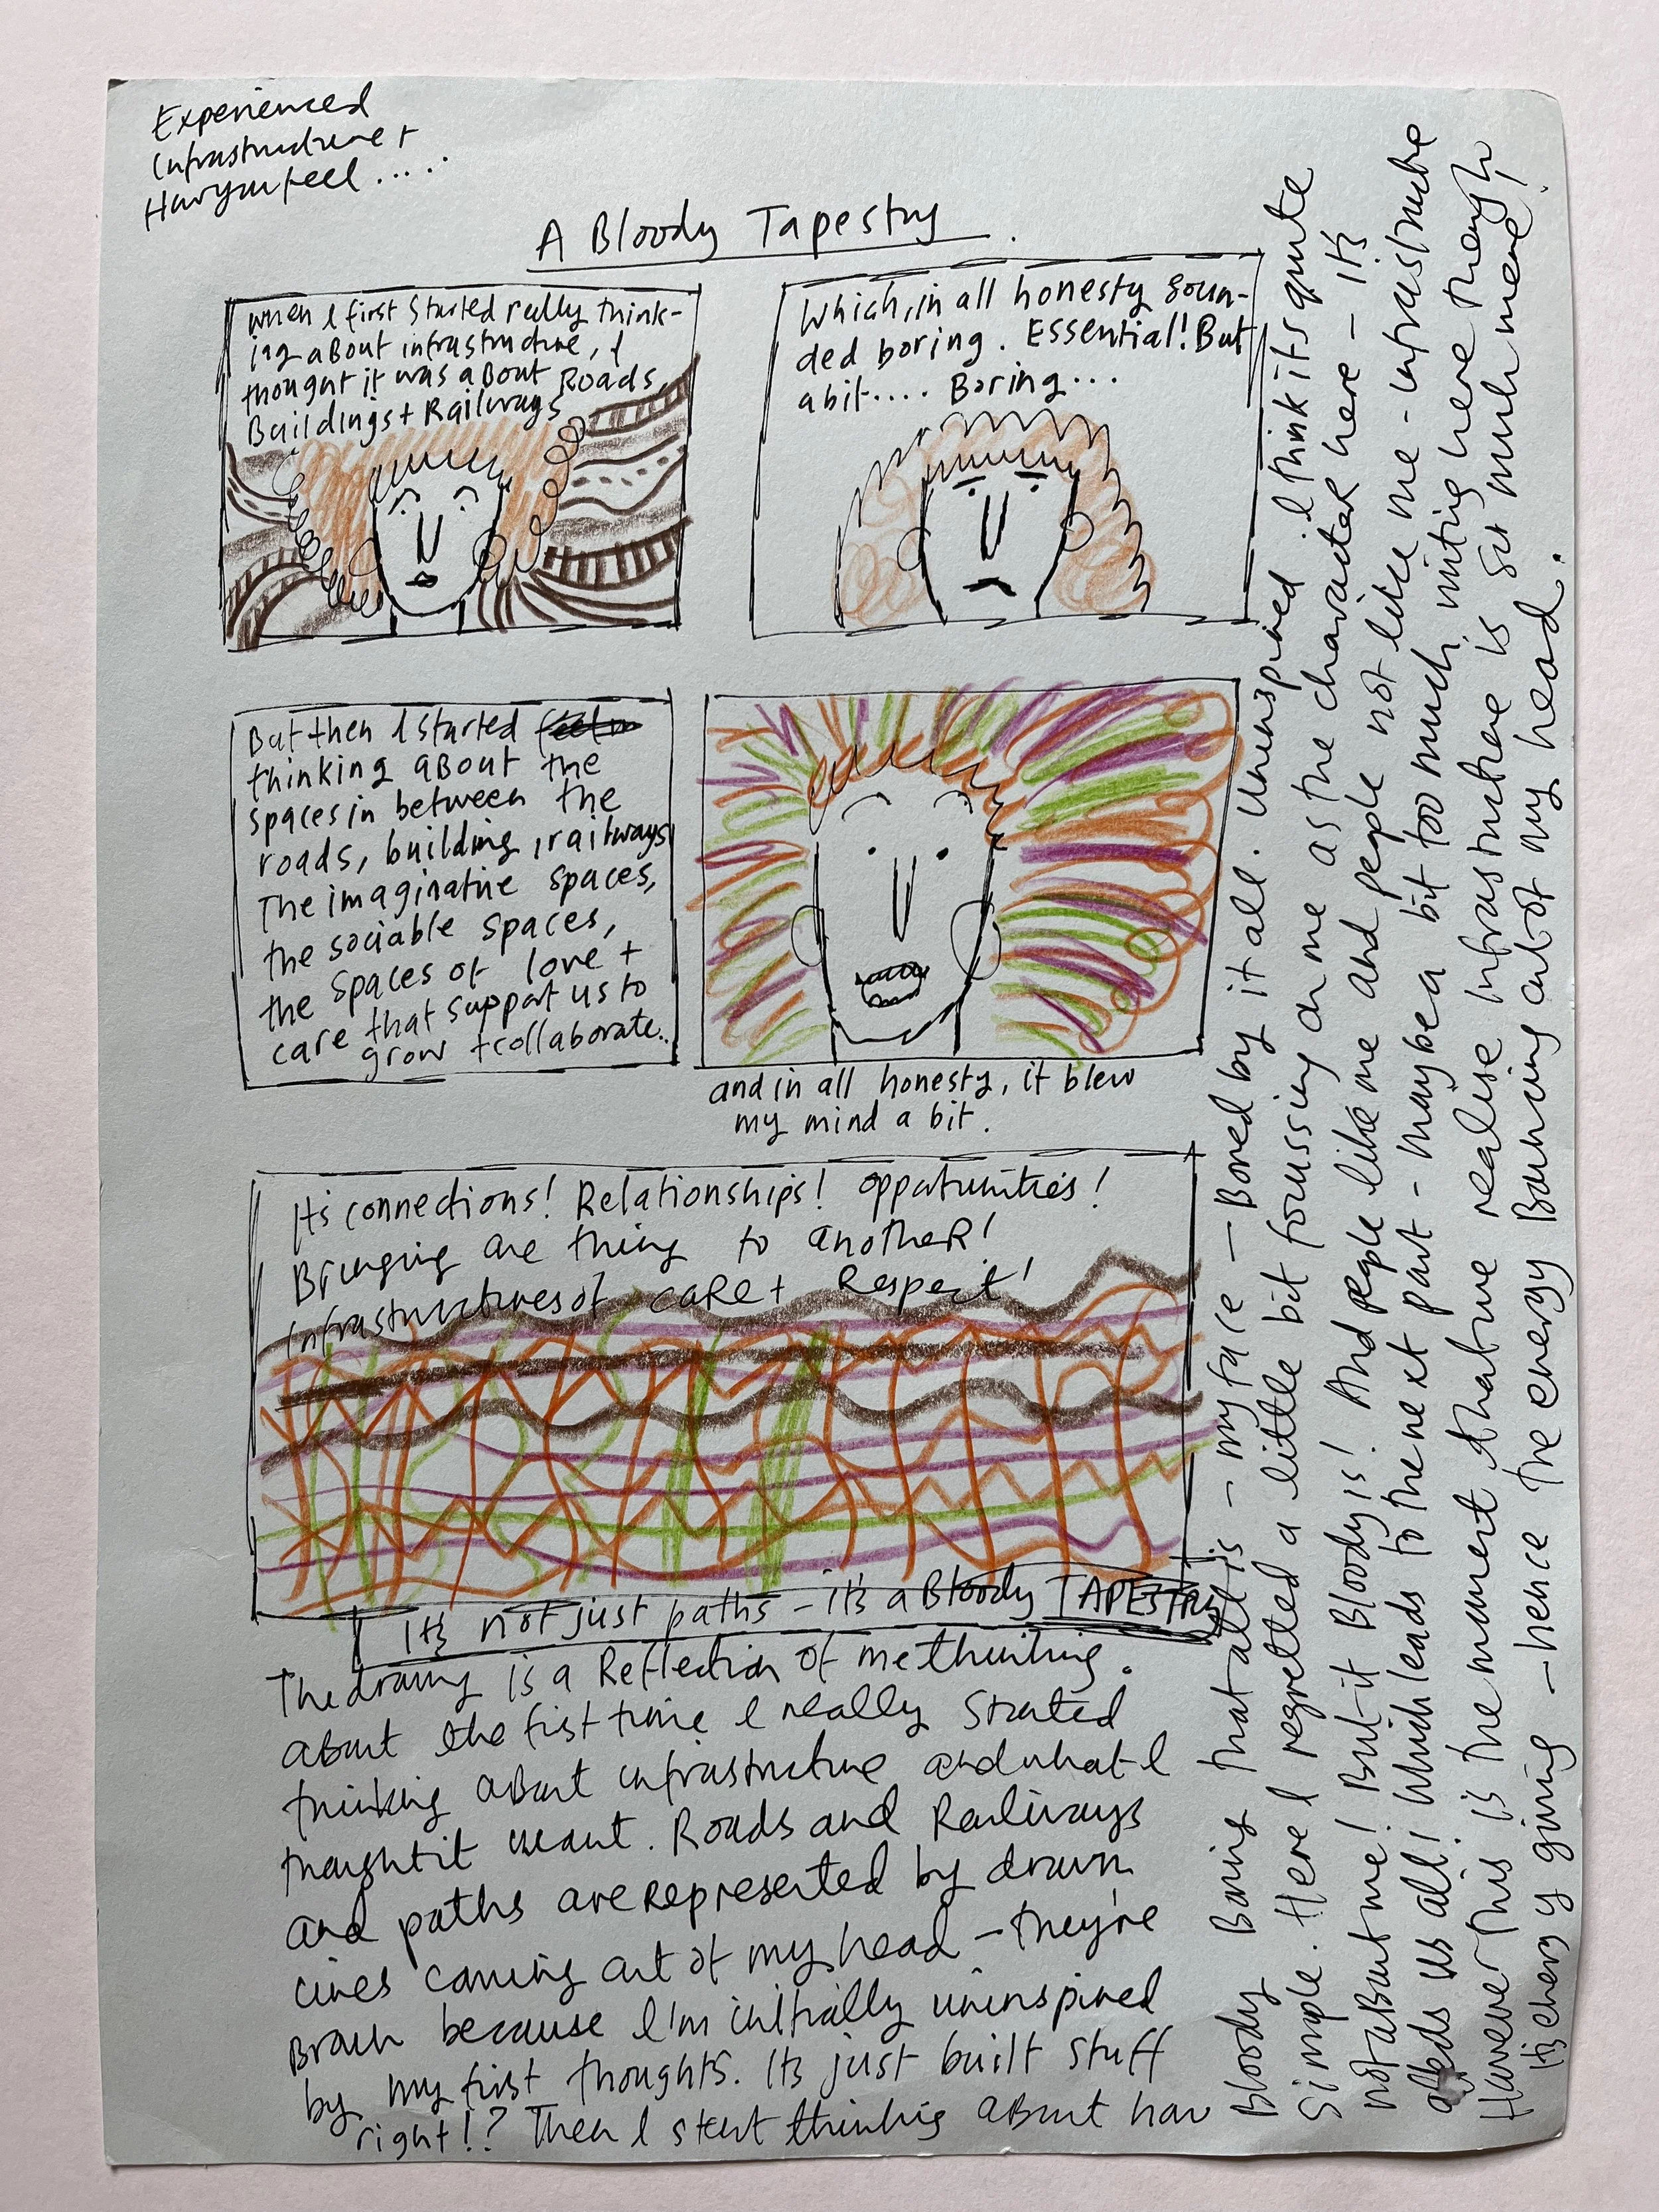 Experienced
Infrastructure +
How you feel ....
A Bloody Tapestry.
When I first started really think-
ing about infrastructure, I
thought it was about Roads,
Buildings + Railways
Which, in all honesty soun-
ded boring. Essential! But
a bit.... Boring...
But then I started
thinking about the
spaces in between the
roads, building, railways
The imaginative spaces,
the sociable spaces,
the spaces of love +
care that support us to
grow + collaborate..
and in all honesty, it blew
my mind a bit.
It's connections! Relationships! opportunities!
Bringing one thing to another!
Infrastructures of care + Respect!
It's not just paths - it's a Bloody TAPESTRY
The drawing is a Reflection of me thinking.
about the first time I really started
thinking about infrastructure and what I
thought it meant. Roads and Railways
and paths are represented by drawn
lines coming out of my head - they're
Brown because I'm initially uninspired
by my first thoughts. Its just built stuff
right!? Then I start thinking about how
Bloody Boring that all is - my face - Bored by it all. Uninspired I think its quite
simple. Here I regretted a little bit focussing on me as the character here - it's
not about me! But it Bloody is! And people like me and people not like me - infrastructure
affects us all! Which leads to the next part - maybe a bit too much writing here though
However this is the moment that we realise infrastructure is so much more!
its energy giving - hence the energy Burning out of my head.